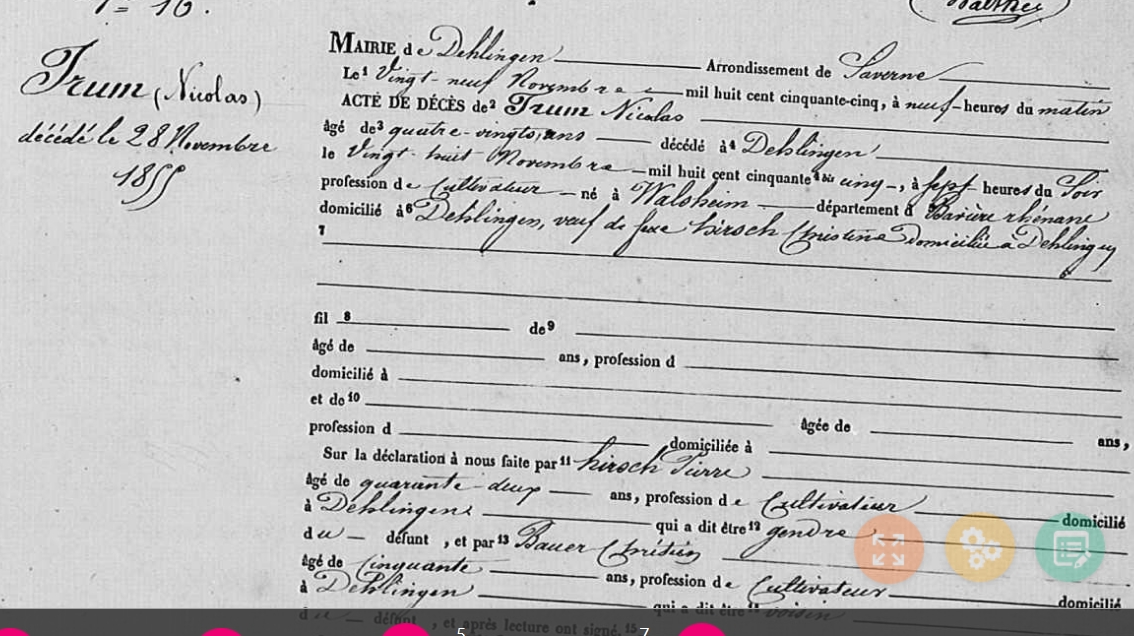 N= 10.
Walther
Trum (Nicolas)
décédé le 28 Novembre
1855
MAIRIE de Dehlingen Arrondissement de Saverne
Le¹ Vingt-neuf Novembre mil huit cent cinquante-cinq, à neuf heures du matin
ACTE DE DÉCÈS de² Trum Nicolas
âgé de³ quatre-vingts, ans décédé à⁴ Dehlingen
le Vingt-huit Novembre mil huit cent cinquante cinq, à sept heures du Soir
profession de Cultivateur né à Walsheim département d Bavière rhénane
domicilié à⁶ Dehlingen, veuf de feue hirsch Christine domiciliée à Dehlingen
7
fil 8 de⁹
âgé de ans, profession d
domicilié à
et de¹⁰ âgée de ans,
profession d domiciliée à
Sur la déclaration à nous faite par¹¹ hirsch Pierre
âgé de quarante-deux ans, profession de Cultivateur domicilié
à Dehlingen qui a dit être¹² gendre
du défunt, et par¹³ Bauer Chrétien
âgé de Cinquante ans, profession de Cultivateur domicilié
à Dehlingen qui a dit être¹⁴ voisin
du défunt, et après lecture ont signé.¹⁵
5 7